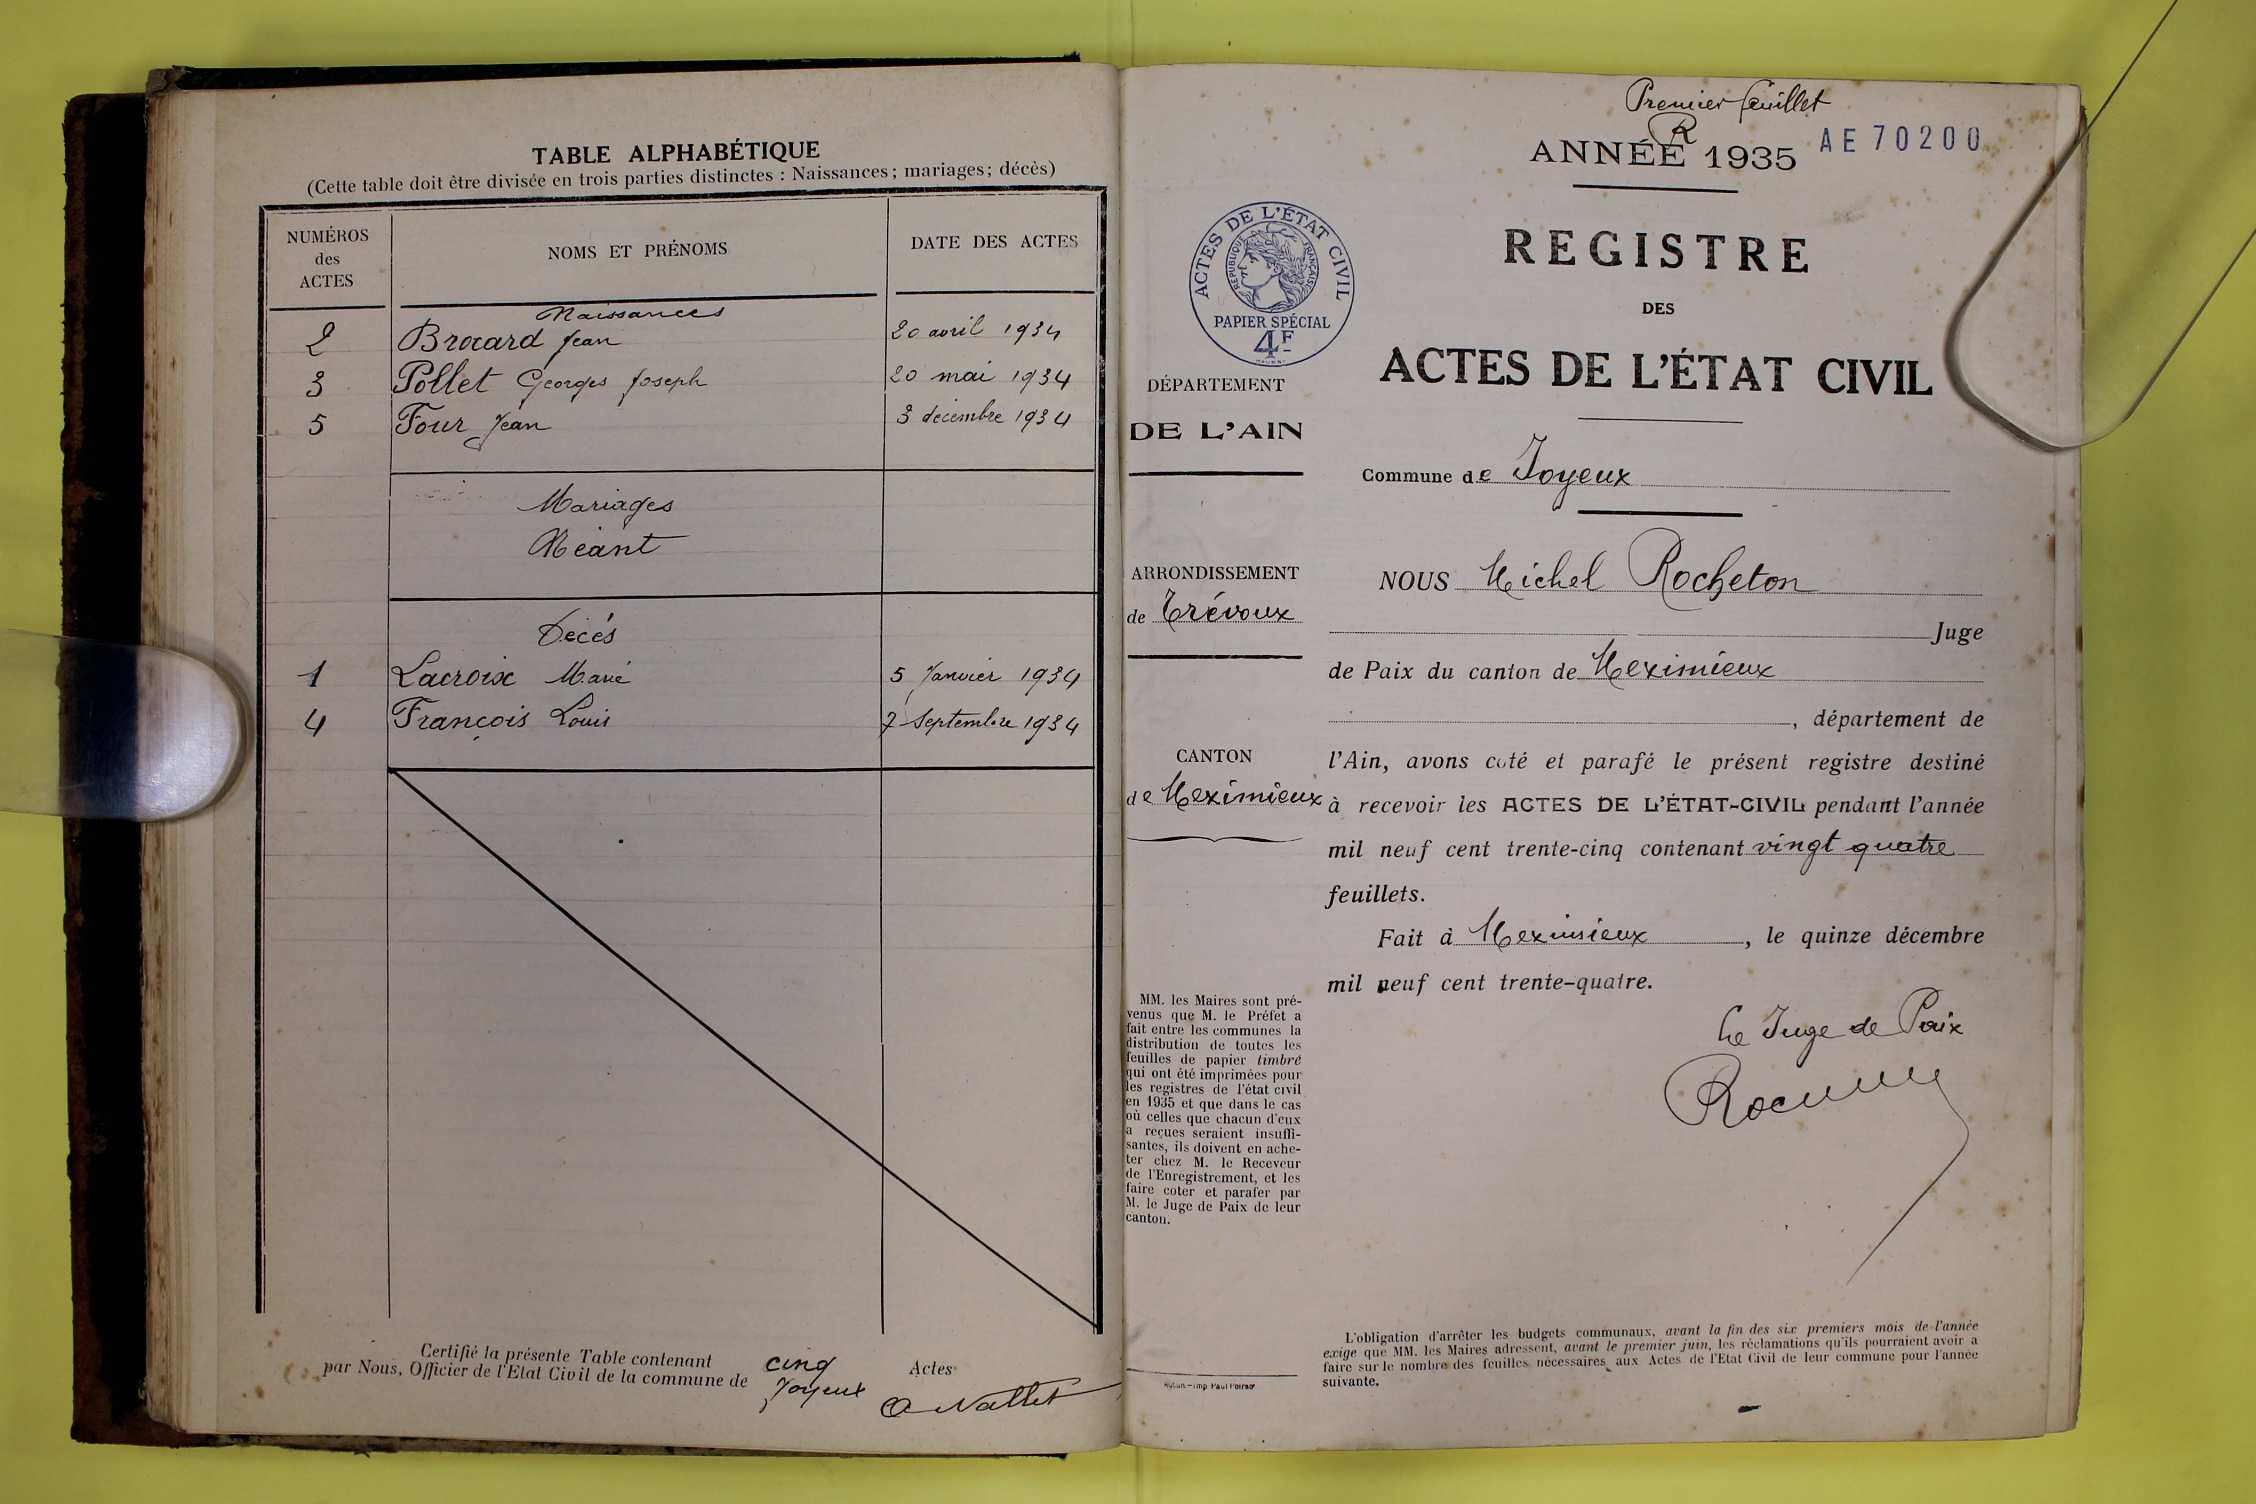 TABLE ALPHABÉTIQUE
(Cette table doit être divisée en trois parties distinctes : Naissances; mariages; décès)
NUMÉROS
des
ACTES
NOMS ET PRÉNOMS
DATE DES ACTES
Naissances
2 Brocard Jean 20 avril 1934
3 Pollet Georges Joseph 20 mai 1934
5 Four Jean 3 décembre 1934
Mariages
Néant
Décés
1 Lacroix Marie 5 Janvier 1934
4 François Louis 7 Septembre 1934
Certifié la présente Table contenant cinq Actes
par Nous, Officier de l'Etat Civil de la commune de Joyeux
Premier feuillet
R
ANNÉE 1935
AE 70200
ACTES DE L'ÉTAT CIVIL
RÉPUBLIQUE FRANÇAISE
PAPIER SPÉCIAL
4F
DÉPARTEMENT
DE L'AIN
ARRONDISSEMENT
de Trévoux
CANTON
de Meximieux
MM. les Maires sont pré-
venus que M. le Préfet a
fait entre les communes la
distribution de toutes les
feuilles de papier timbré
qui ont été imprimées pour
les registres de l'état civil
en 1935 et que dans le cas
où celles que chacun d'eux
a reçues seraient insuffi-
santes, ils doivent en ache-
ter chez M. le Receveur
de l'Enregistrement, et les
faire coter et parafer par
M. le Juge de Paix de leur
canton.
REGISTRE
DES
ACTES DE L'ÉTAT CIVIL
Commune de Joyeux
NOUS Michel Rocheton
Juge
de Paix du canton de Meximieux
, département de
l'Ain, avons coté et parafé le présent registre destiné
à recevoir les ACTES DE L'ÉTAT-CIVIL pendant l'année
mil neuf cent trente-cinq contenant vingt quatre
feuillets.
Fait à Meximieux, le quinze décembre
mil neuf cent trente-quatre.
Le Juge de Paix
L'obligation d'arrêter les budgets communaux, avant la fin des six premiers mois de l'année
exige que MM. les Maires adressent, avant le premier juin, les réclamations qu'ils pourraient avoir à
faire sur le nombre des feuilles nécessaires aux Actes de l'Etat Civil de leur commune pour l'année
suivante.